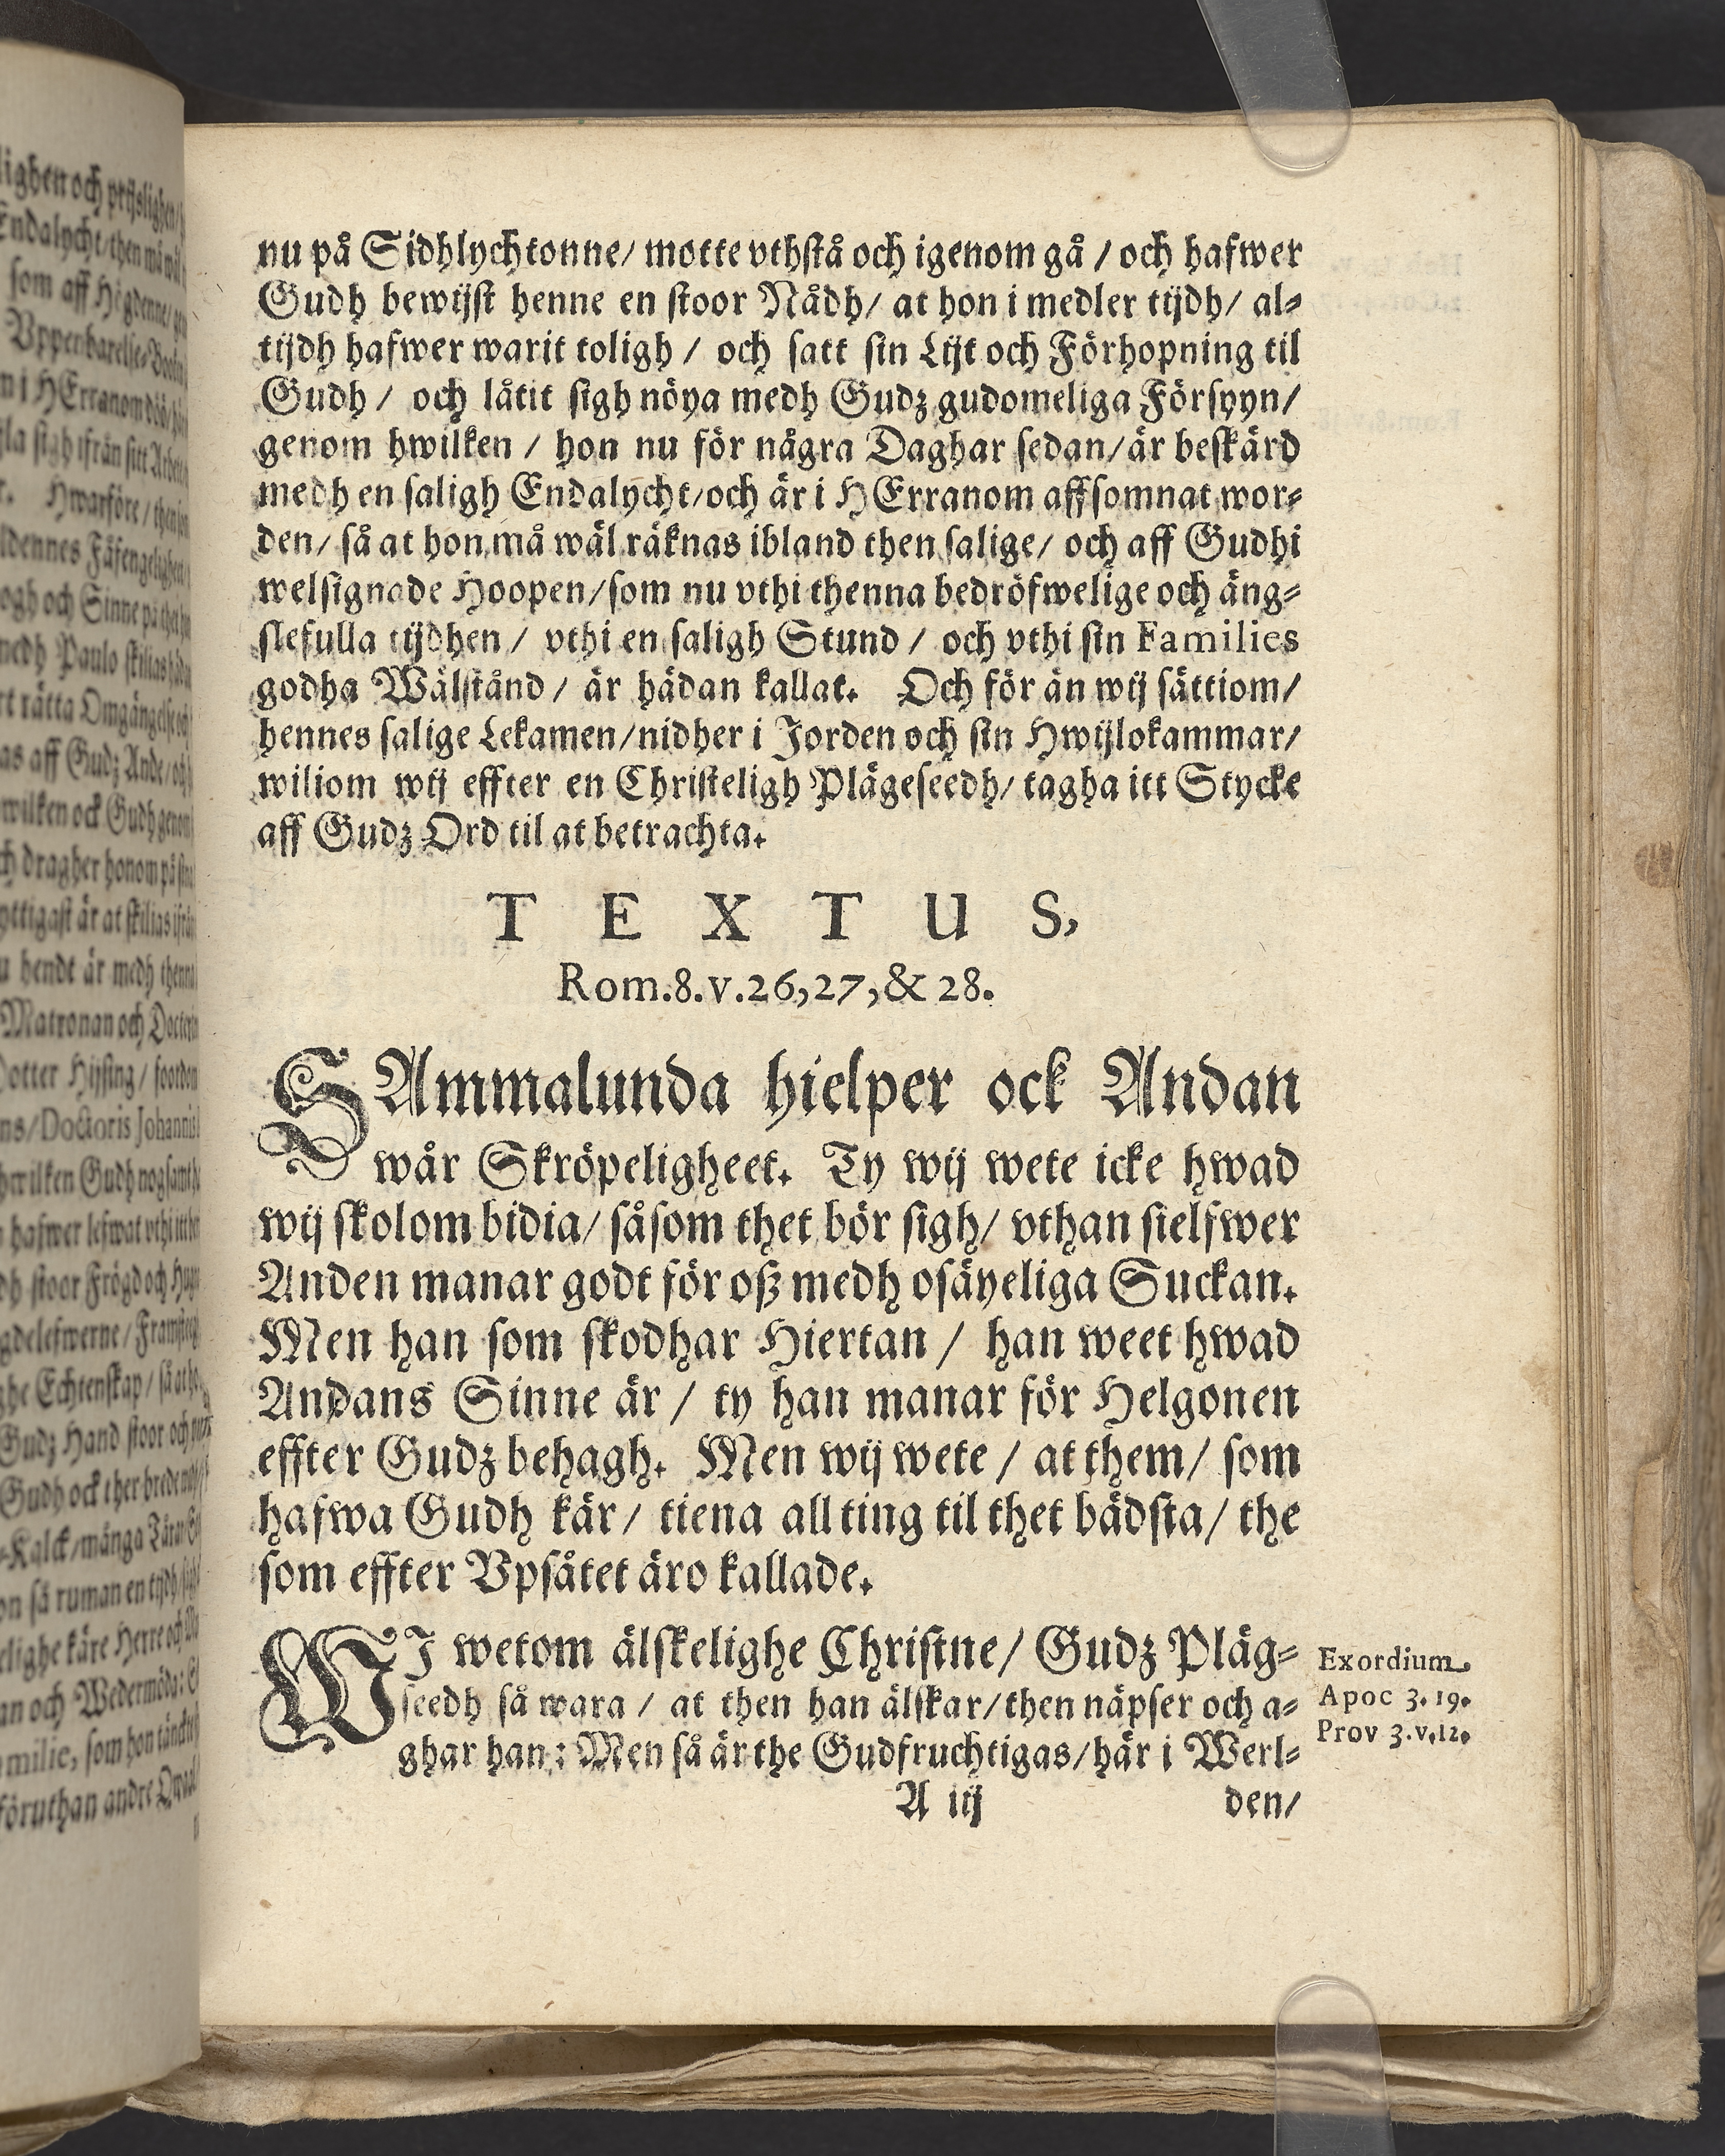 nu på Sidhlychtonne/ motte vthstå och igenom gå / och hafwer
Gudh bewijst henne en stoor Nådh/ at hon i medler tijdh/ al-
tijdh hafwer warit toligh / och satt sin Lijt och Förhopning til
Gudh / och låtit sigh nöya medh Gudz gudomeliga Försyyn/
genom hwilken / hon nu för några Daghar sedan/är beskärd
medh en saligh Endalycht/och är i HErranom affsomnat wor-
den/ så at hon må wäl räknas ibland then salige/ och aff Gudhi
welsignade Hoopen/som nu vthi thenna bedröfwelige och äng-
slefulla tijdhen / vthi en saligh Stund / och vthi sin Families
godha Wälstånd / är hädan kallat. Och för än wij sättiom/
hennes salige Lekamen/nidher i Jorden och sin Hwijlokammar/
wiliom wij effter en Christeligh Plägeseedh/ tagha itt Stycke
aff Gudz Ord til at betrachta.
TEXTUS,
Rom.8.v.26,27,& 28.
SAmmalunda hielper ock Andan
wår Skröpeligheet. Ty wij wete icke hwad
wij skolom bidia/ såsom thet bör sigh/ vthan sielfwer
Anden manar godt för oß medh osäyeliga Suckan.
Men han som skodhar Hiertan / han weet hwad
Andans Sinne är / ty han manar för Helgonen
effter Gudz behagh. Men wij wete / at them/ som
hafwa Gudh kär/ tiena all ting til thet bädsta/ the
som effter Vpsåtet äro kallade.
WJ wetom älskelighe Christne/ Gudz Pläg-
seedh så wara / at then han älskar/then näpser och a-
ghar han: Men så är the Gudfruchtigas/här i Werl-
Exordium.
Apoc 3. 19.
Prov 3.v.12.
A iij den/